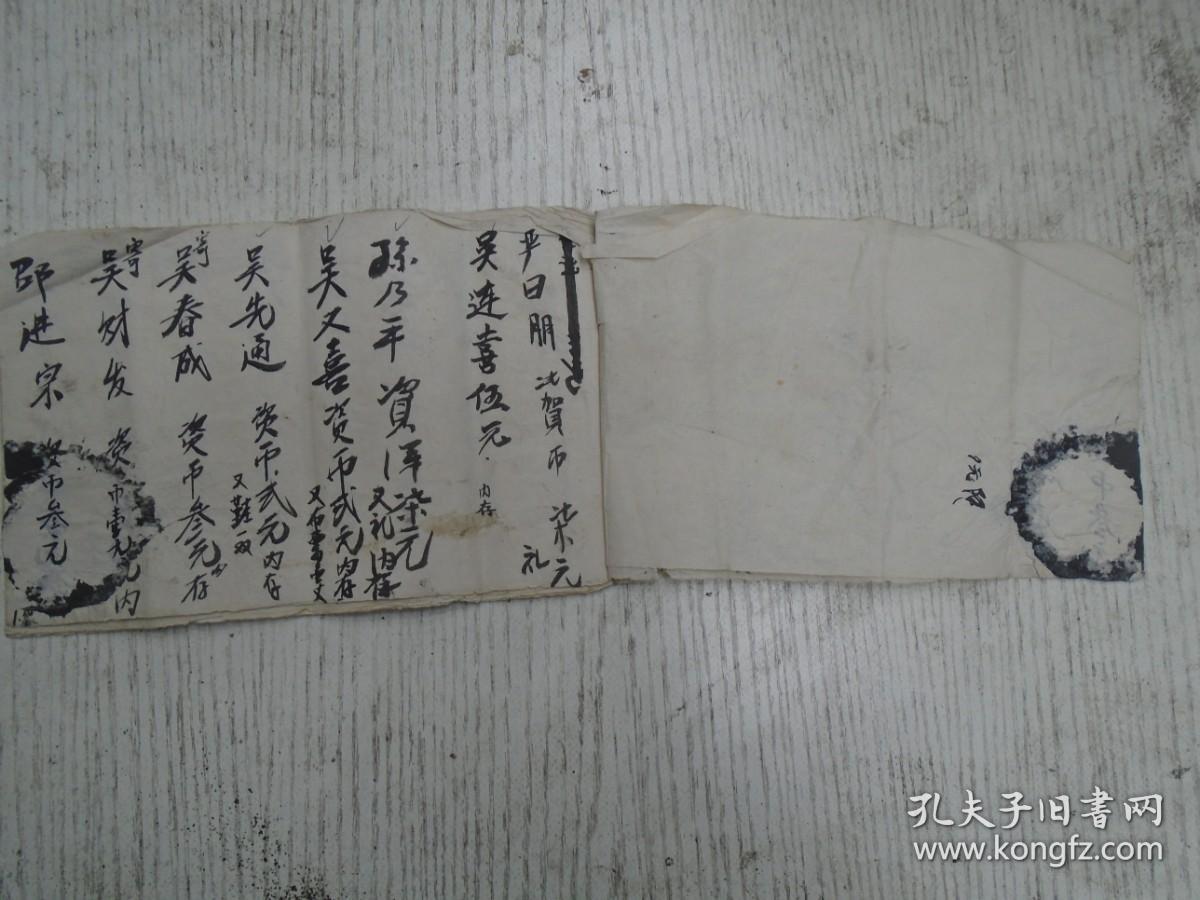 严日朋 賀币 柒元
礼
吴连喜伍元 内存
孫乃平 資洋柒元
又礼 内存
吴又喜 资币贰元 内存
吴先通 资币贰元 内存
又鞋一双
寄
吴春成 资币叁元 存
寄
吴财发 资币壹元 内
邵进宗 资币叁元
孔夫子旧书网
www.kongfz.com